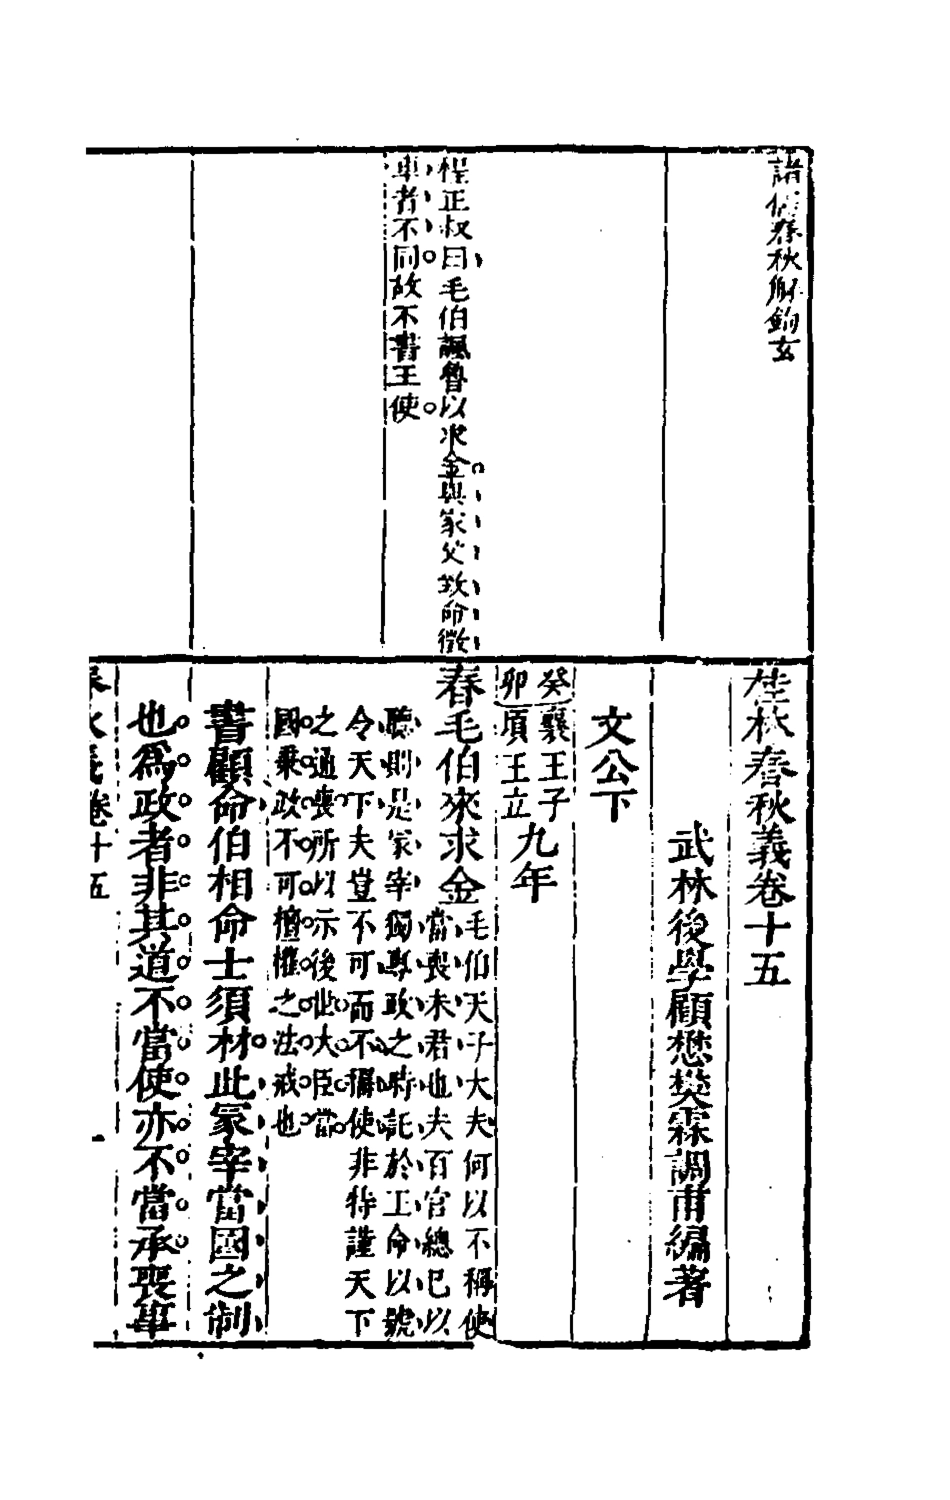 諸儒春秋解鉤玄
程正叔曰毛伯諷魯以求金與家父致命徵
車者不同故不書王使
桂林春秋義卷十五
武林後學顧懋樊霖調甫編著
文公下
癸卯 襄王子
頃王立 九年
春毛伯來求金
毛伯天子大夫何以不稱使
當喪未君也夫百官總已以
聽則是冢宰獨專政之時託於王命以號
令天下夫豈不可而不稱使非特謹天下
之通喪所以示後世大臣當
國秉政不可擅權之法戒也
書顧命伯相命士須材此冢宰當國之制
也為政者非其道不當使亦不當承喪事
春秋義卷十五
一